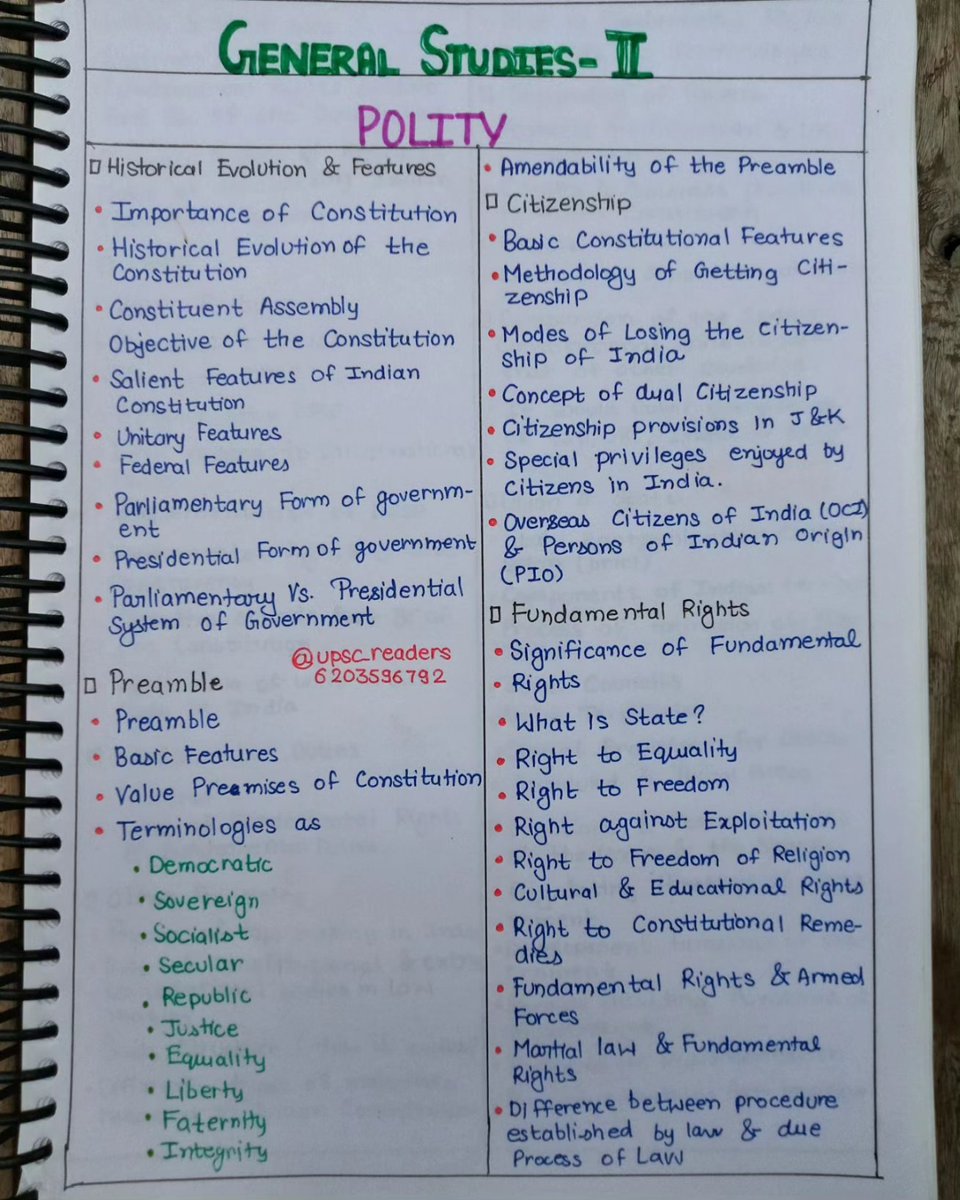 GENERAL STUDIES-II
POLITY
Historical Evolution & Features
• Importance of Constitution
• Historical Evolution of the
Constitution
• Constituent Assembly
Objective of the Constitution
• Salient Features of Indian
Constitution
• Unitary Features
• Federal Features
• Parliamentary Form of governm-
ent
• Presidential Form of government
• Parliamentary Vs. Presidential
System of Government
@upsc_readers
6203596792
Preamble
• Preamble
• Basic Features
• Value Premises of Constitution
• Terminologies as
• Democratic
• Sovereign
• Socialist
• Secular
• Republic
• Justice
• Equality
• Liberty
• Faternity
• Integrity
• Amendability of the Preamble
Citizenship
• Basic Constitutional Features
• Methodology of Getting Citi-
zenship
• Modes of Losing the Citizen-
ship of India
• Concept of dual Citizenship
• Citizenship provisions In J&K
• Special privileges enjoyed by
Citizens in India.
• Overseas Citizens of India (OCI)
& Persons of Indian Origin
(PIO)
Fundamental Rights
• Significance of Fundamental
• Rights
• What is State?
• Right to Equality
• Right to Freedom
• Right against Exploitation
• Right to Freedom of Religion
• Cultural & Educational Rights
• Right to Constitutional Reme-
dies
• Fundamental Rights & Armed
Forces
• Martial law & Fundamental
Rights
• Difference between procedure
established by law & due
Process of Law